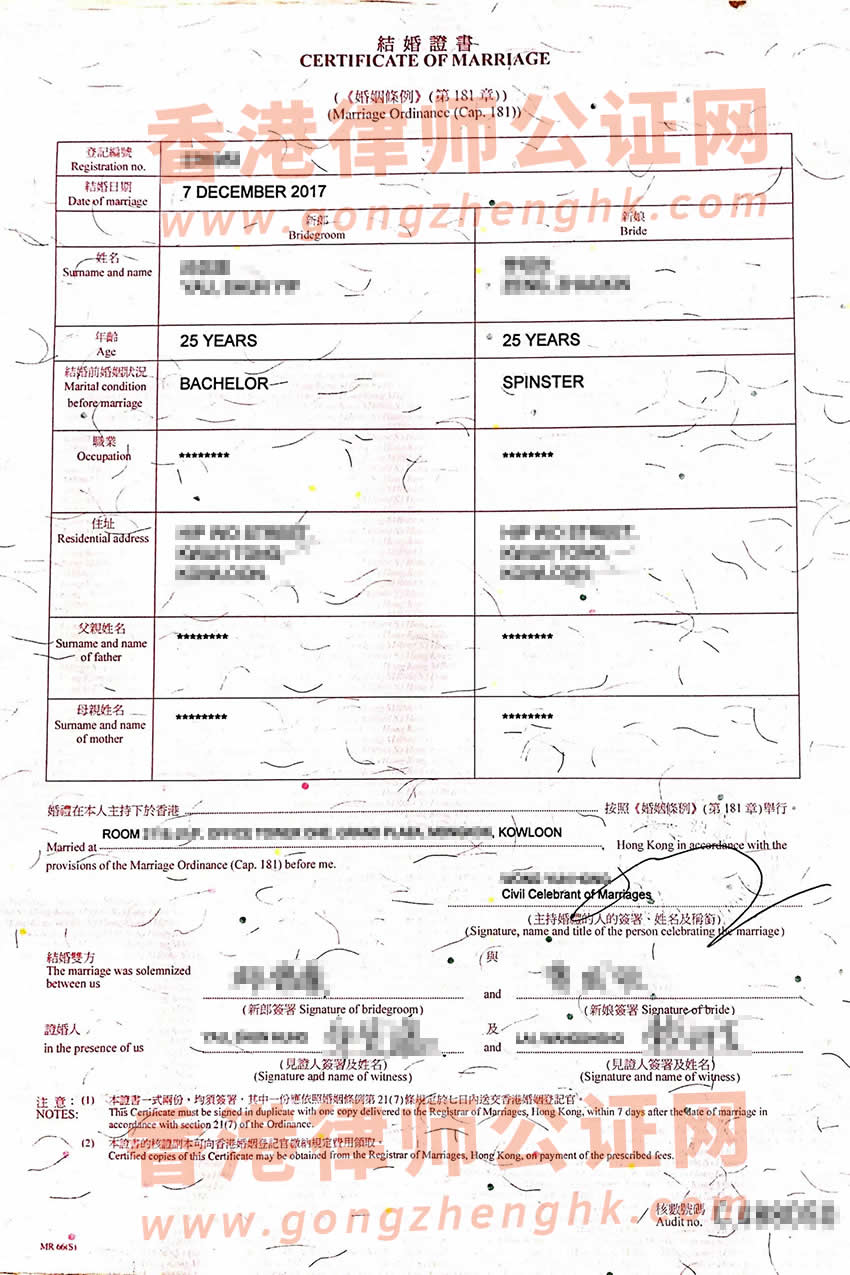 結婚證書
CERTIFICATE OF MARRIAGE
(《婚姻條例》(第 181 章))
(Marriage Ordinance (Cap. 181))
香港律师公证网
www.gongzhenghk.com
登記編號
Registration no.
結婚日期
Date of marriage
7 DECEMBER 2017
新郎
Bridegroom
新娘
Bride
姓名
Surname and name
年齡
Age
25 YEARS
25 YEARS
結婚前婚姻狀況
Marital condition
before marriage
BACHELOR
SPINSTER
職業
Occupation
********
********
住址
Residential address
父親姓名
Surname and name
of father
********
********
母親姓名
Surname and name
of mother
********
********
婚禮在本人主持下於香港 按照《婚姻條例》(第 181 章)舉行。
ROOM KOWLOON
Married at , Hong Kong in accordance with the
provisions of the Marriage Ordinance (Cap. 181) before me.
Civil Celebrant of Marriages
(主持婚禮的人的簽署、姓名及稱銜)
(Signature, name and title of the person celebrating the marriage)
結婚雙方
The marriage was solemnized
between us
與
and
(新郎簽署 Signature of bridegroom)
(新娘簽署 Signature of bride)
證婚人
in the presence of us
及
and
(見證人簽署及姓名)
(Signature and name of witness)
(見證人簽署及姓名)
(Signature and name of witness)
注意: (1) 本證書一式兩份，均須簽署，其中一份應依照婚姻條例第 21(7) 條規定於七日內送交香港婚姻登記官。
NOTES: This Certificate must be signed in duplicate with one copy delivered to the Registrar of Marriages, Hong Kong, within 7 days after the date of marriage in
accordance with section 21(7) of the Ordinance.
(2) 本證書的核證副本可向香港婚姻登記官繳納規定費用領取。
Certified copies of this Certificate may be obtained from the Registrar of Marriages, Hong Kong, on payment of the prescribed fees.
香港律师公证网
www.gongzhenghk.com
核數號碼
Audit no.
MR 66(S)